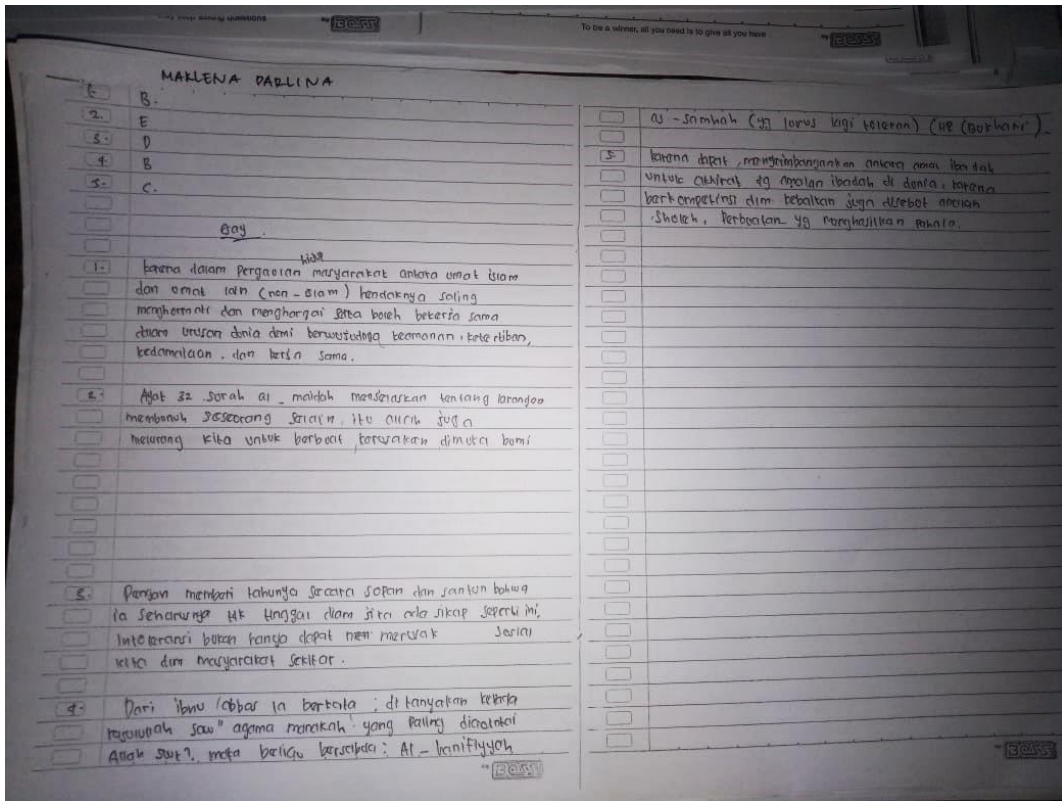 BOSS
To be a winner, all you need is to give all you have
BOSS
MAKLENA DARLINA
1. B.
2. E
3. D
4. B
5. C.
Esay.
1. karena dalam Pergaulan hidup masyarakat antara umat islam
dan umat lain (non-islam) hendaknya saling
menghormati dan menghargai serta boleh bekerja sama
dalam urusan dunia demi berwujudnya keamanan, ketertiban,
kedamaian, dan kerja sama.
2. Ayat 32 surah al-maidah menjelaskan tentang larangan
membunuh seseorang selain itu allah juga
melarang kita untuk berbuat kerusakan dimuka bumi
3. Dengan memberi tahunya secara sopan dan santun bahwa
ia seharusnya tdk tinggal diam jika ada sikap seperti ini,
Intoleransi bukan hanya dapat merusak
kita dlm masyarakat sekitar.
4. Dari ibnu 'abbas ia berkata; di tanyakan kepada
rasulullah saw "agama manakah yang Paling dicintai
Allah swt?, maka beliau bersabda: Al-hanifiyyah
as-samhah (yg lurus lagi toleran) (HR (Bukhari)
5. karena dapat menyeimbangankan antara amal ibadah
untuk akhirat dg amalan ibadah di dunia, karena
berkompetinsi dlm kebaikan juga disebut amalan
sholeh, Perbuatan yg menghasilkan Pahala.
BOSS
BOSS